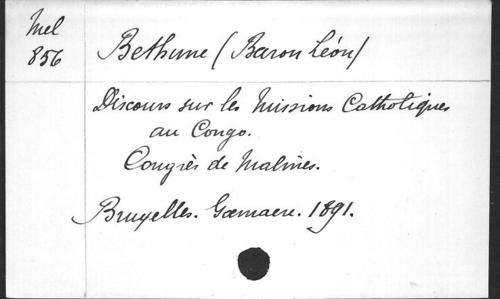 Mel
856
Bethune (Baron Léon)
Discours sur les Missions Catholiques
au Congo.
Congrès de Malines.
Bruxelles. Goemaere. 1891.